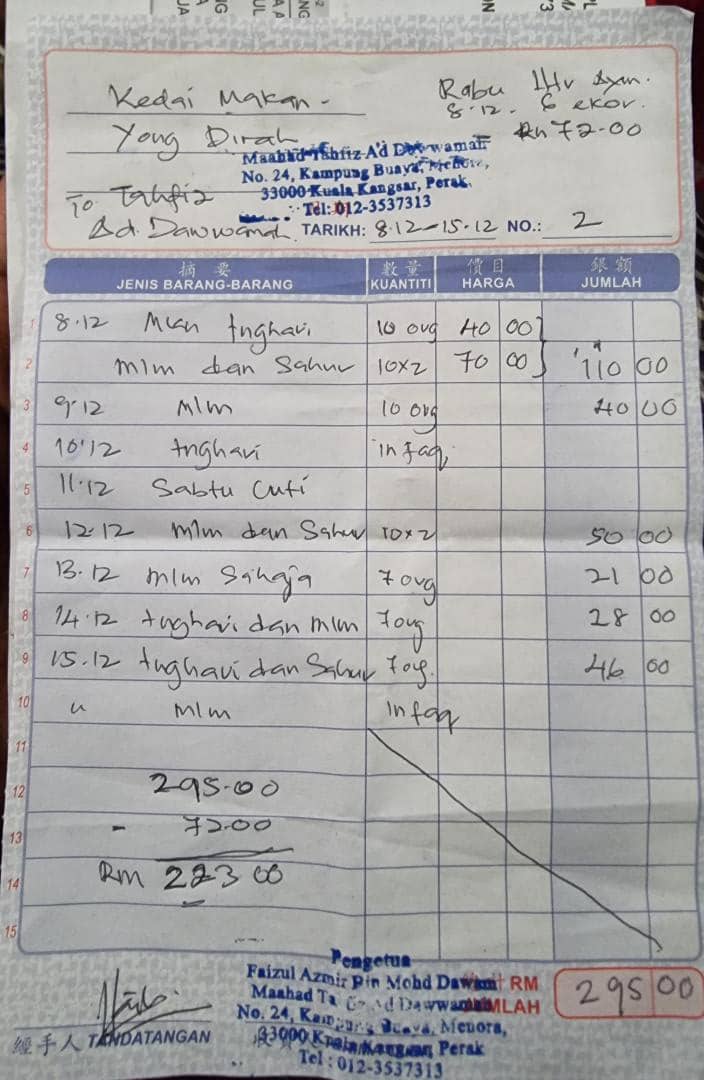 Kedai Makan -
Yong Dirah
To Tahfiz
Ad. Dawwamah
Rabu 1 Htr Ayam.
8.12. 6 ekor.
Rm 72.00
Maahad Tahfiz Ad Dawwamah
No. 24, Kampung Buaya, Menora,
33000 Kuala Kangsar, Perak.
Tel: 012-3537313
TARIKH: 8.12-15.12 NO.: 2
摘要 數量 價目 銀額
JENIS BARANG-BARANG KUANTITI HARGA JUMLAH
1 8.12 Mkn tnghari 10 org 40 00
2 mlm dan Sahur 10x2 70 00 110 00
3 9.12 mlm 10 org 40 00
4 10.12 tnghari infaq
5 11.12 Sabtu Cuti
6 12.12 mlm dan Sahur 10x2 50 00
7 13.12 mlm Sahaja 7 org 21 00
8 14.12 tnghari dan mlm 7 org 28 00
9 15.12 tnghari dan Sahur 7 org. 46 00
10 " mlm infaq
11
12 295.00
13 - 72.00
14 RM 223 00
15
Pengetua
Faizul Azmir Bin Mohd Dawi
Maahad Ad Dawwamah
No. 24, Kampung Buaya, Menora,
33000 Kuala Kangsar, Perak
Tel : 012-3537313
RM
JUMLAH 295 00
經手人 TANDATANGAN